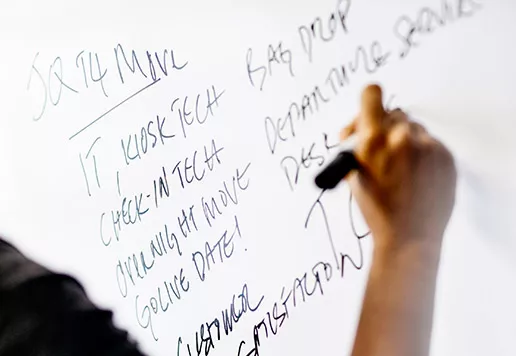 JQ T4 MOVE
IT, KIOSK TECH
CHECK-IN TECH
OVERNIGHT MOVE
GOLIVE DATE!
CUSTOMER
SATISFACTION
BAG DROP
DEPARTURE SERVICE
DESK